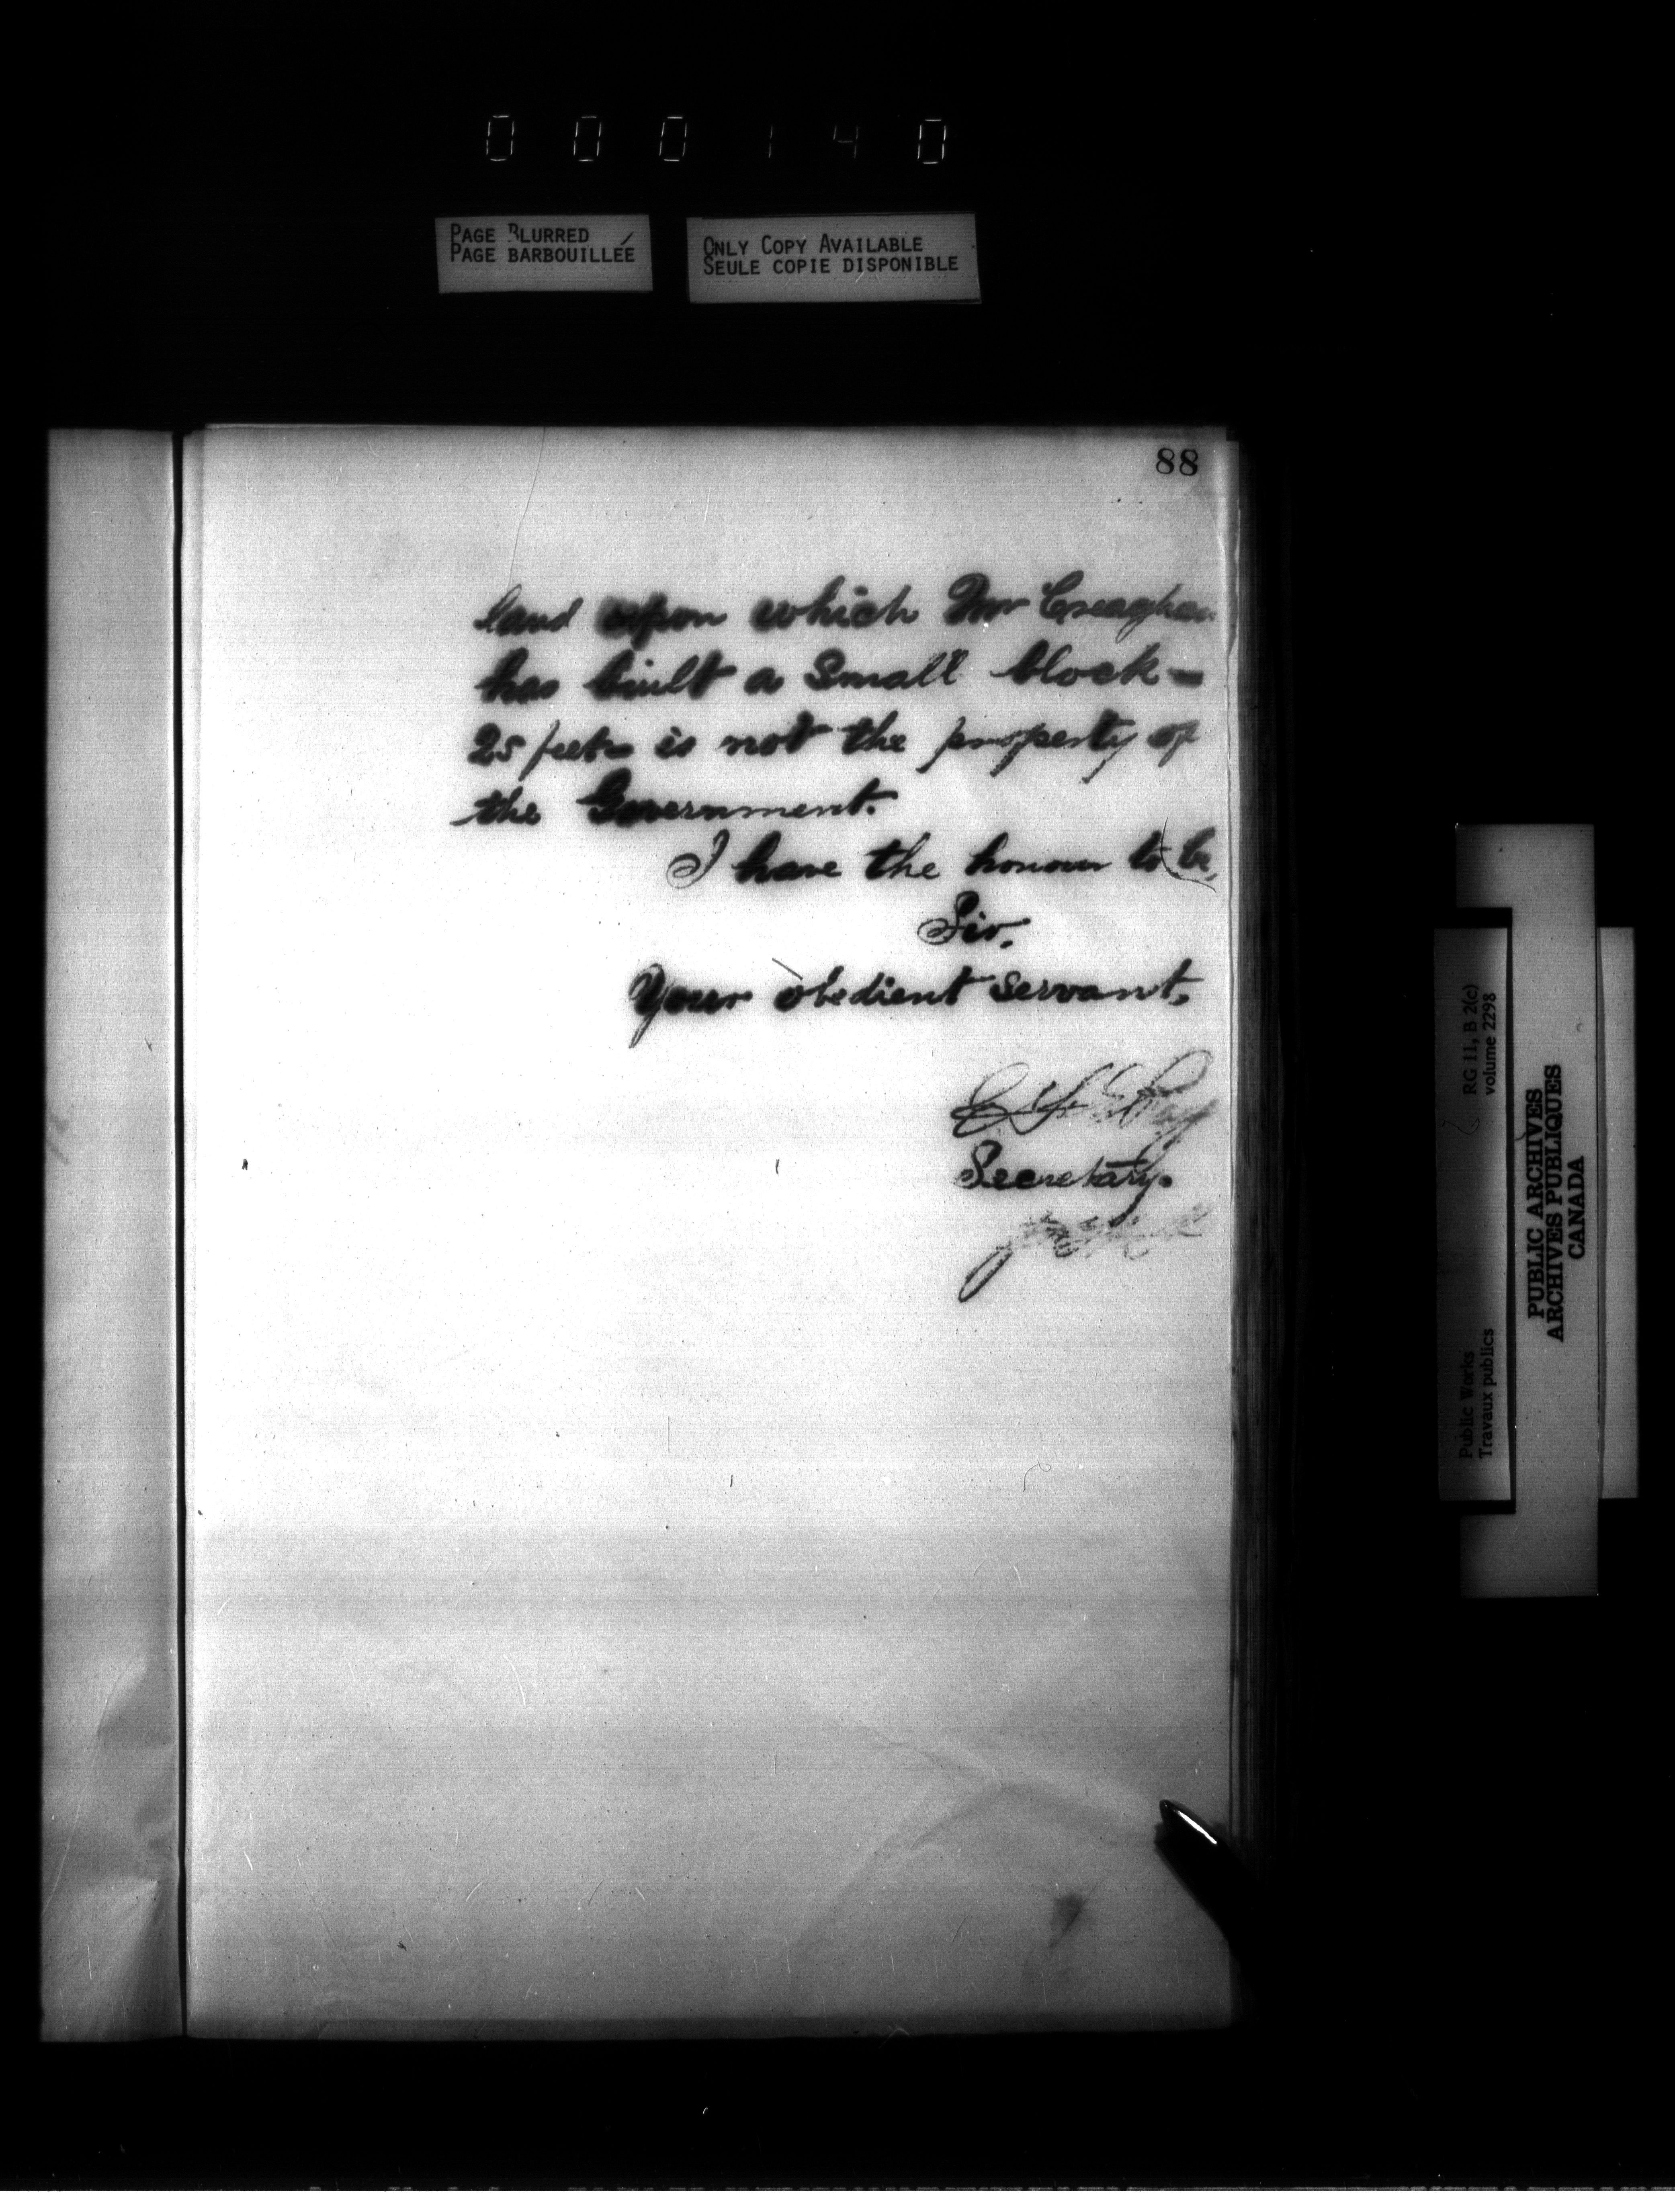 000140
PAGE BLURRED
PAGE BARBOUILLÉE
ONLY COPY AVAILABLE
SEULE COPIE DISPONIBLE
88
land upon which Mr Creaghan
has built a small block –
25 feet – is not the property of
the Government.
I have the honour to be,
Sir,
Your obedient servant,
Secretary.
RG 11, B 2(c)
volume 2298
Public Works
Travaux publics
PUBLIC ARCHIVES
ARCHIVES PUBLIQUES
CANADA